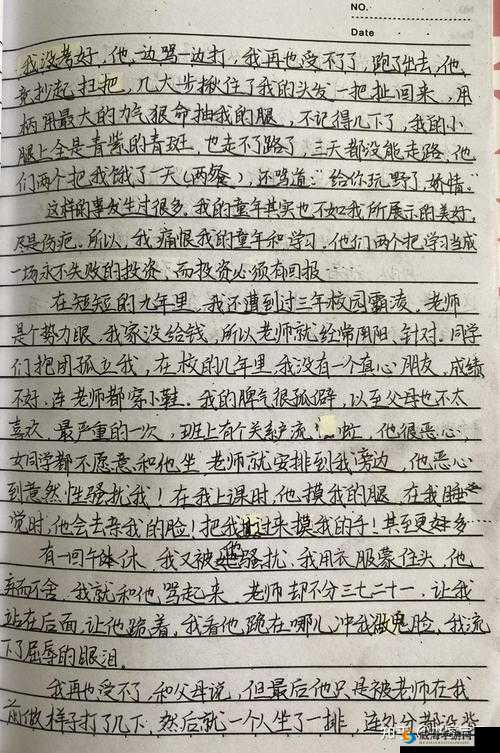 NO.
Date
我没考好，他一边骂一边打，我再也受不了了，跑了出去，他
竟抄起扫把，几大步揪住了我的头发一把扯回来，用
柄用最大的力气狠命抽我的腿，不记得几下了，我的小
腿上全是青紫的青斑，也走不了路了，三天都没能走路，他
们两个把我饿了一天（两餐），还骂道："给你玩野了，娇情。"
这样的事发生过很多。我的童年其实也不如我所展示的美好，
尽是伤疤。所以，我痛恨我的童年和学习。他们两个把学习当成
一场永不失败的投资，而投资必须有回报。
在短短的九年里，我还遭到过三年校园霸凌，老师
是个势力眼，我家没给钱，所以老师就经常阴阳、针对。同学
们抱团孤立我，在校的几年里，我没有一个真心朋友，成绩
不好，连老师都穿小鞋。我的脾气很孤僻，以至父母也不太
喜欢。最严重的一次，班上有个关系户流，他很恶心，
女同学都不愿意和他坐，老师就安排到我旁边，他恶心
到竟然性骚扰我！在我上课时，他摸我的腿，在我睡
觉时，他会去亲我的脸！把我过来摸我的手！甚至更多
有一回午休，我又被他骚扰，我用衣服蒙住头，他
弃而不舍，我就和他骂起来，老师却不分三七二十一，让我
站在后面，让他跪着，我看他跪在哪儿冲我做鬼脸，我流
下了屈辱的眼泪。
我再也受不了，和父母说，但最后他只是被老师在我
前做样子打了几下，然后就一个人坐了一排，连处分都没
知乎